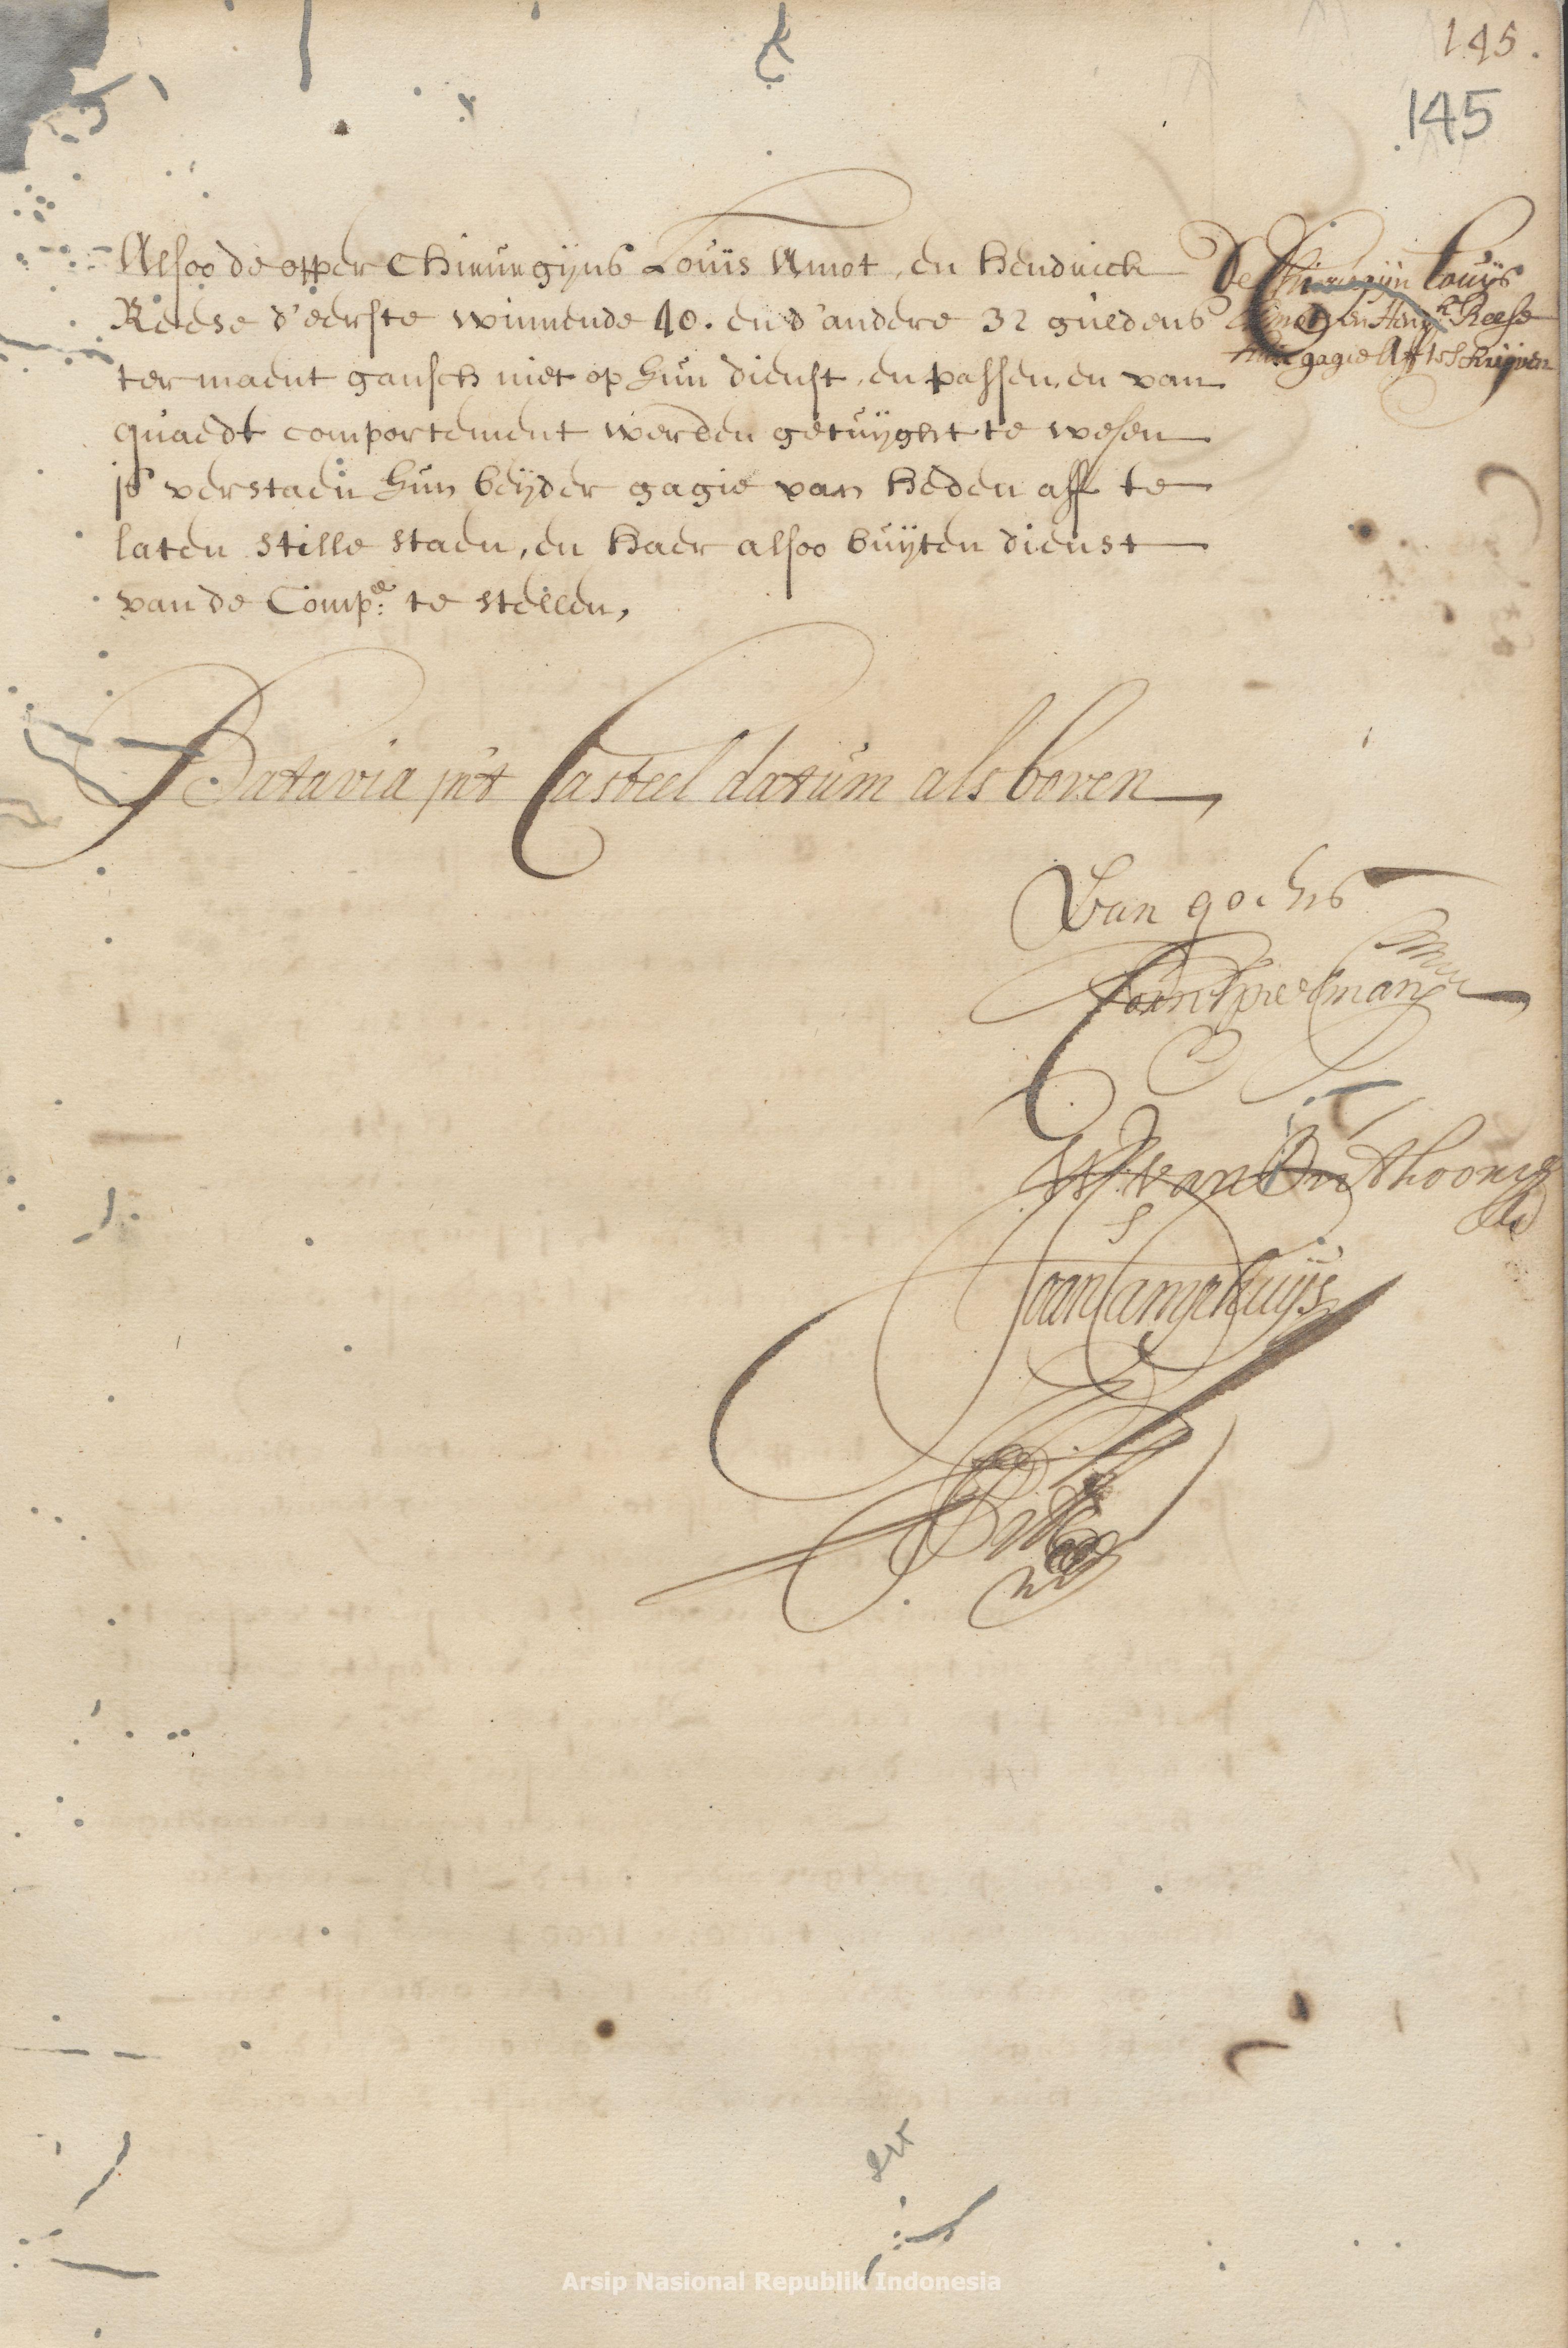 145.
145
Alsoo de opper Chirurgijns Louis Amot, en Hendrick
Reese d'eerste winnende 40. en d'andere 32 guldens
ter maent gansch niet op hun dienst, en passen, en van
quaedt comportement werden getuijght te wesen
is verstaen hun beijder gagie van heden aff te
laten stille staen, en haer alsoo buijten dienst
van de Compe: te stellen,
De Chirurgijn Louijs
Amot en Hendk Reese
hare gagie Aff te schrijven
Batavia in't Casteel datum als boven
Van goens
Corn Speelman
W: van Outhoorn
Joan Camphuijs
Arsip Nasional Republik Indonesia